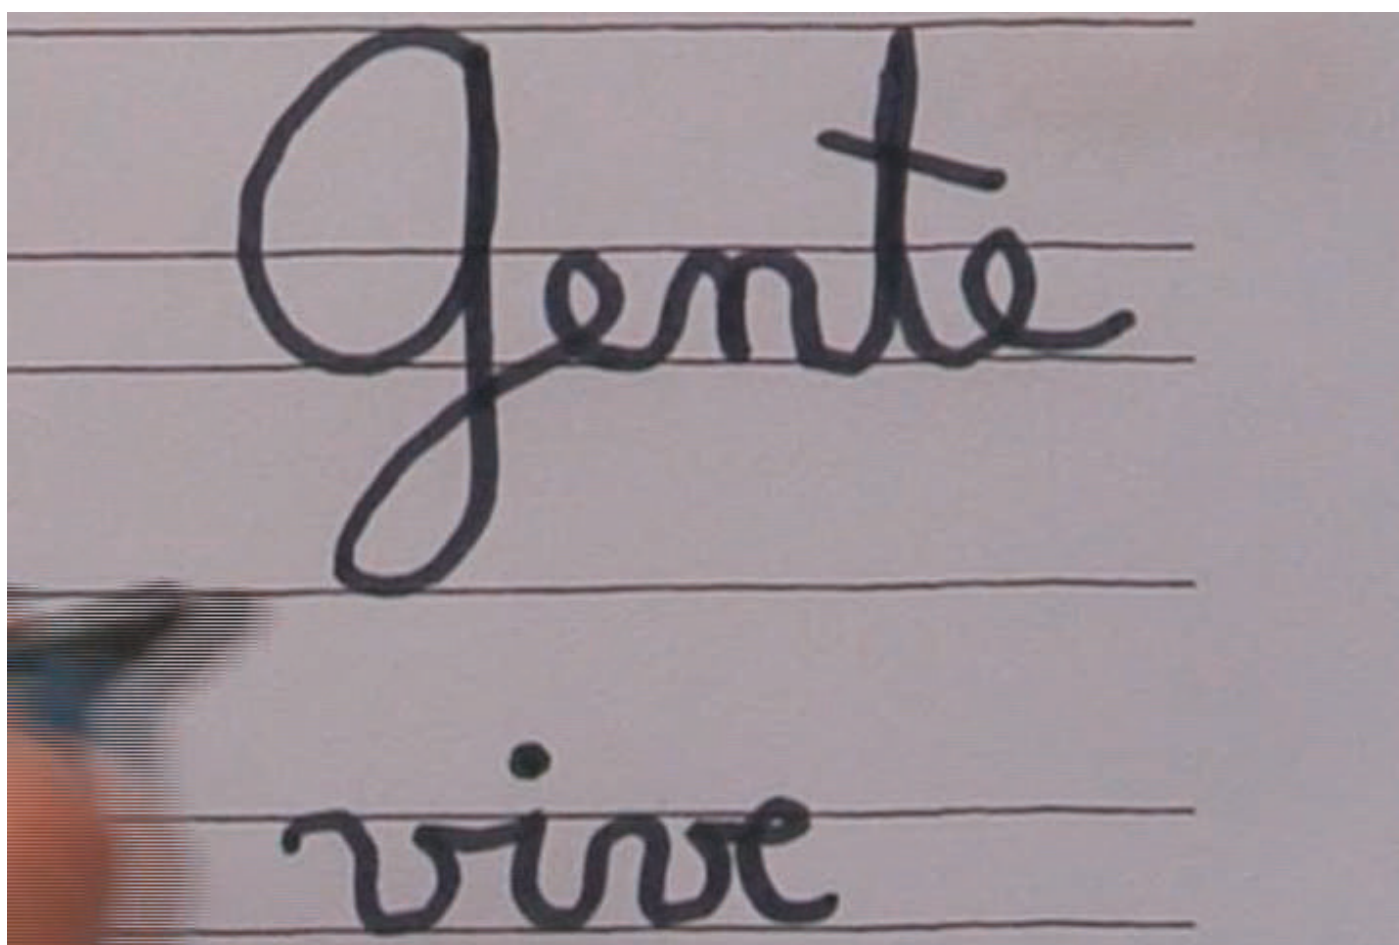 Gente
vive